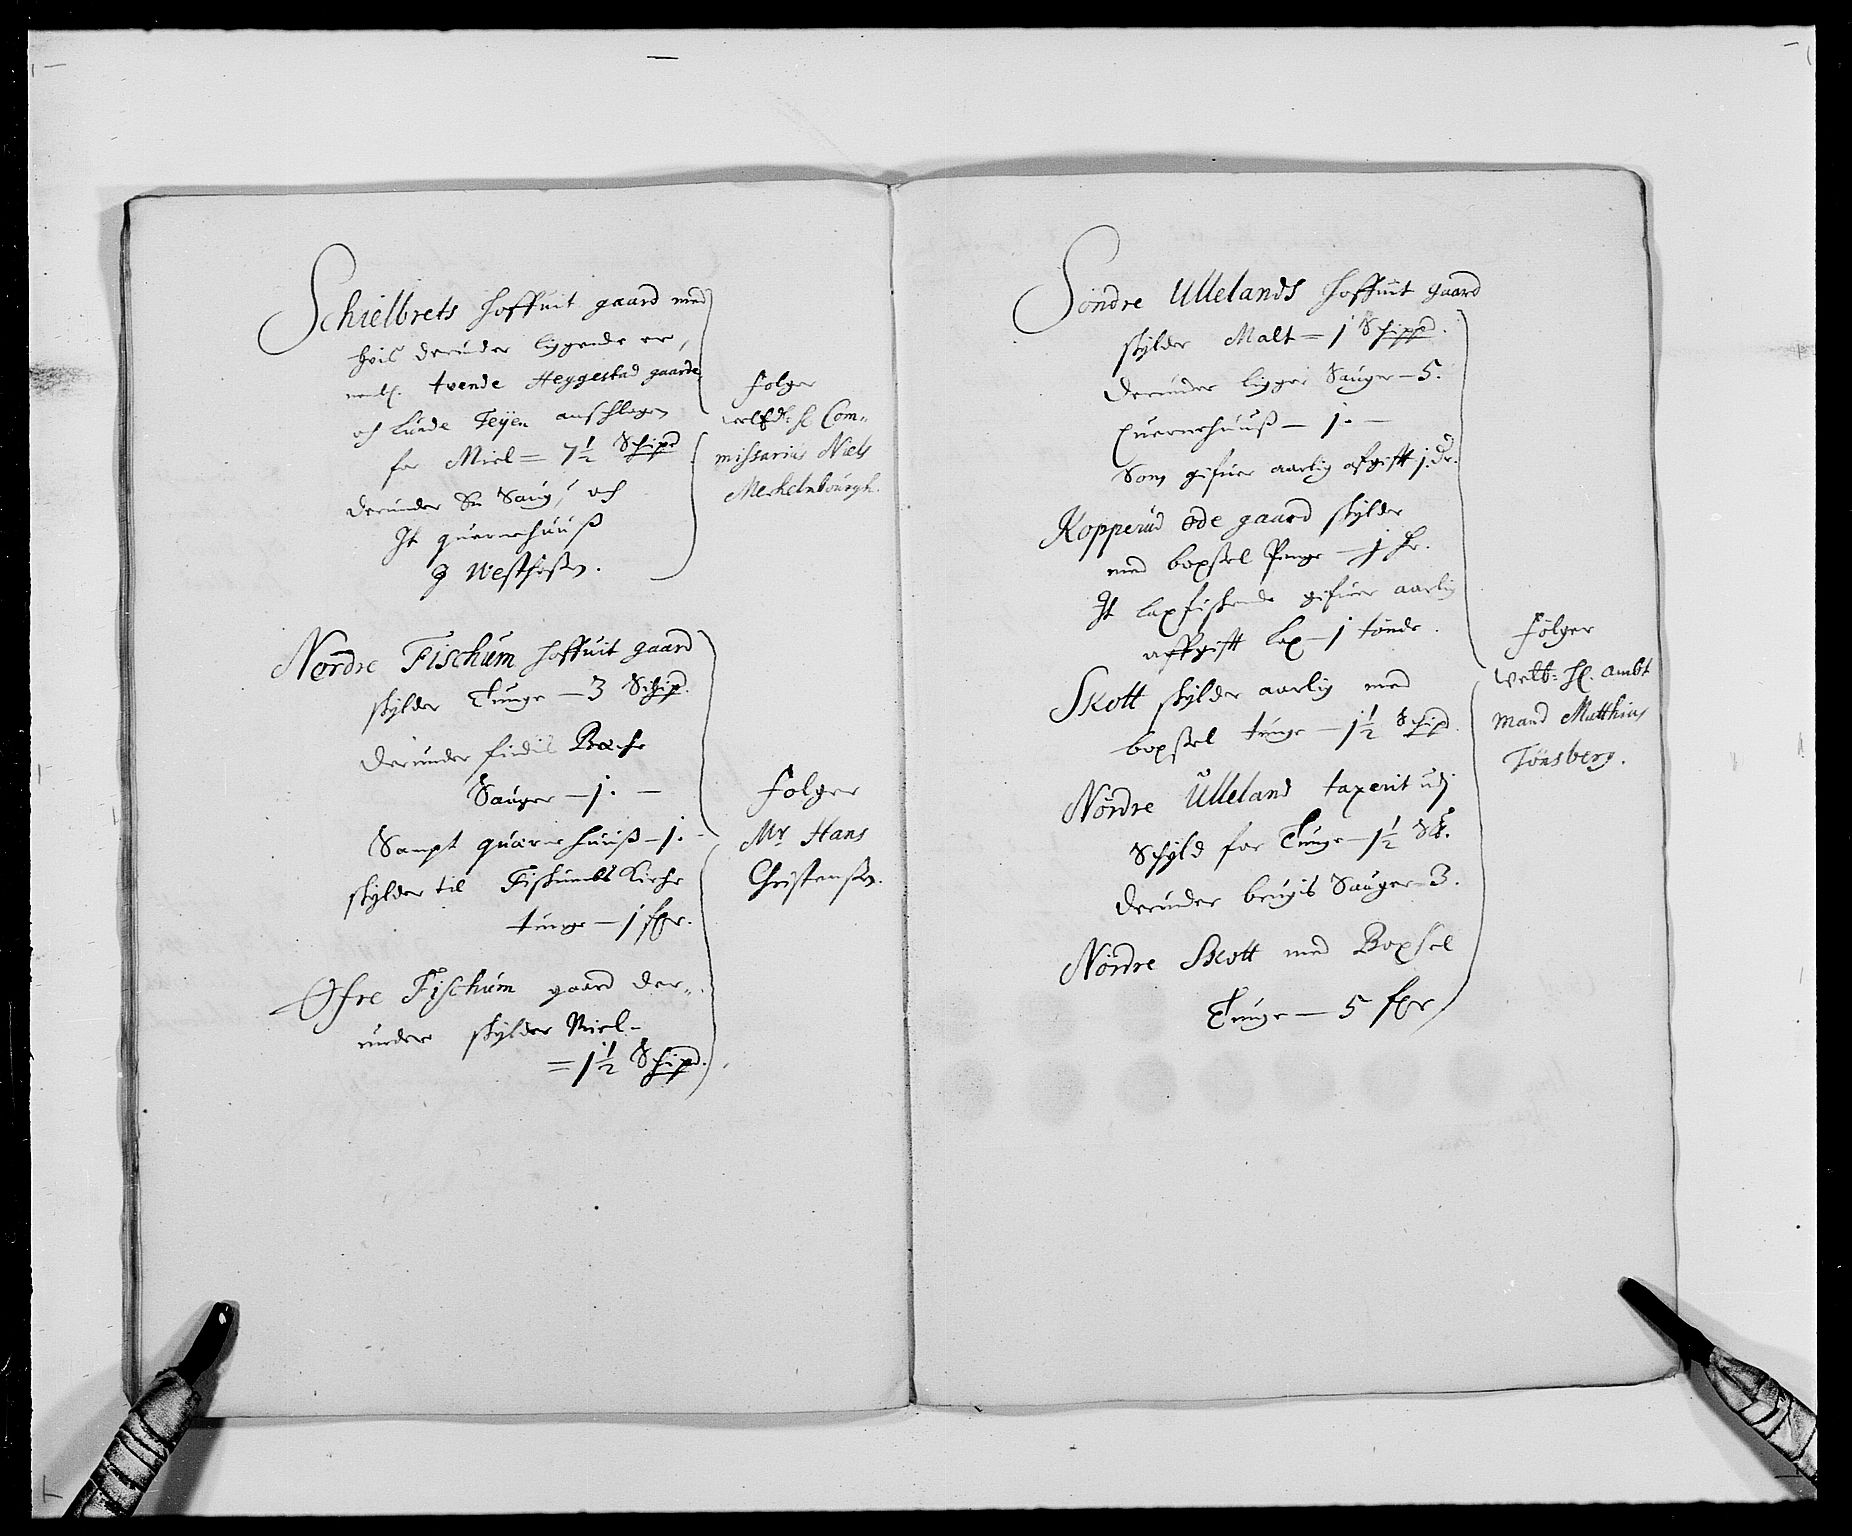 Schielbrets hoffuit gaard med
hvis derunder liggende er,
neml. tvende Heggestad gaarde
och Lunde Teÿen anschlagen
for Miel = 7½ Schipd
derunder En Saug, och
It quernehuuß
J Westfosen.
Folger
welEdl: Sl Com-
missarius Niels
Merkelnbourgh.
Nordre Fischum hoffuit gaard
skÿlder Tunge - 3 Schipd.
derunder findis Beche
Sauger - j. -
Sampt quernehuuß - j. -
skÿlder til Fiskumbs Kirche
tunge - j fpr.
Øfre Fischum gaard der-
under skÿlder Miel -
= 1½ Schipd.
Folger
Mr Hans
Christensen.
Sondre Ullelands hoffuit gaard
skÿlder Malt = j Schippd.
derunder ligger Sauger - 5.
Quernehuuß - j. -
Som gifuer aarlig afgift j. Dr.
Kopperud øde gaard skÿlder
med boxsel Penge - j
It laxfiskende gifuer aarlig
affgift lax - j tønde.
Skott skÿlder aarlig med
boxsel tunge - 1½ Schipd.
Nordre Ulleland taxerit udj
Schÿld for Tunge - 1½ S℔.
derunder brugis Sauger - 3.
Nordre Skott med Boxsel
Tunge - 5 fpr
Følger
welb: Sl. ambt
mand Matthias
Tønsberg.